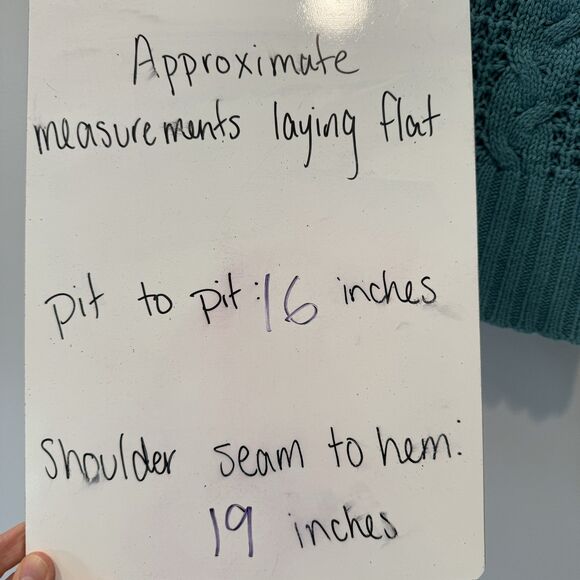 Approximate
measurements laying flat
pit to pit: 16 inches
shoulder seam to hem:
19 inches